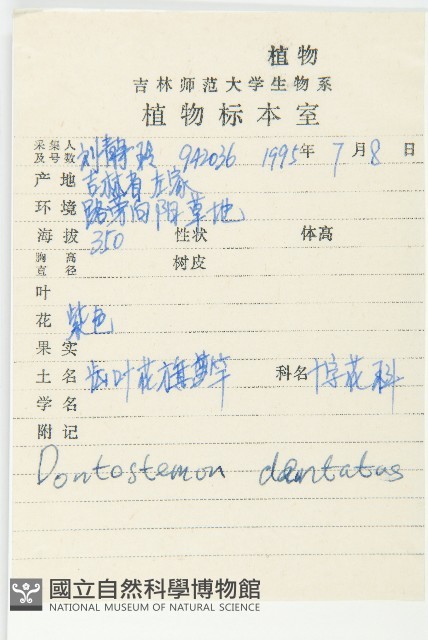 植物
吉林师范大学生物系
植物标本室
采集人及号数 刘静玲 942036 1995年 7月8日
产地 吉林省左家
环境 路旁向阳草地
海拔 350 性状 体高
胸高直径 树皮
叶
花 紫色
果实
土名 齿叶花旗竿 科名 十字花科
学名
附记
Dontostemon dentatus
國立自然科學博物館
NATIONAL MUSEUM OF NATURAL SCIENCE